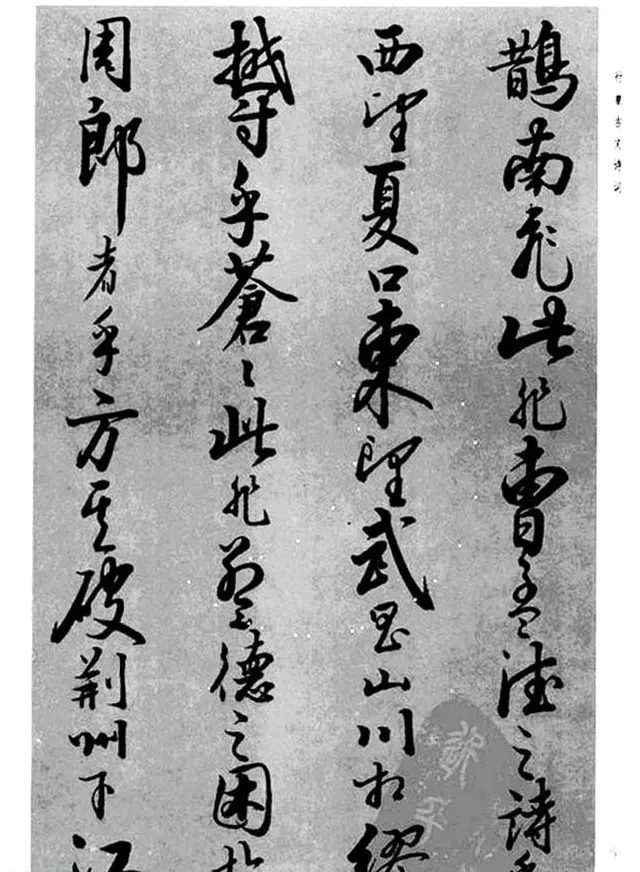 行書古文诗词
鵲南飛此非曹孟德之詩乎
西望夏口東望武昌山川相繆
欝乎蒼〻此非孟德之困於
周郎者乎方其破荆州下江